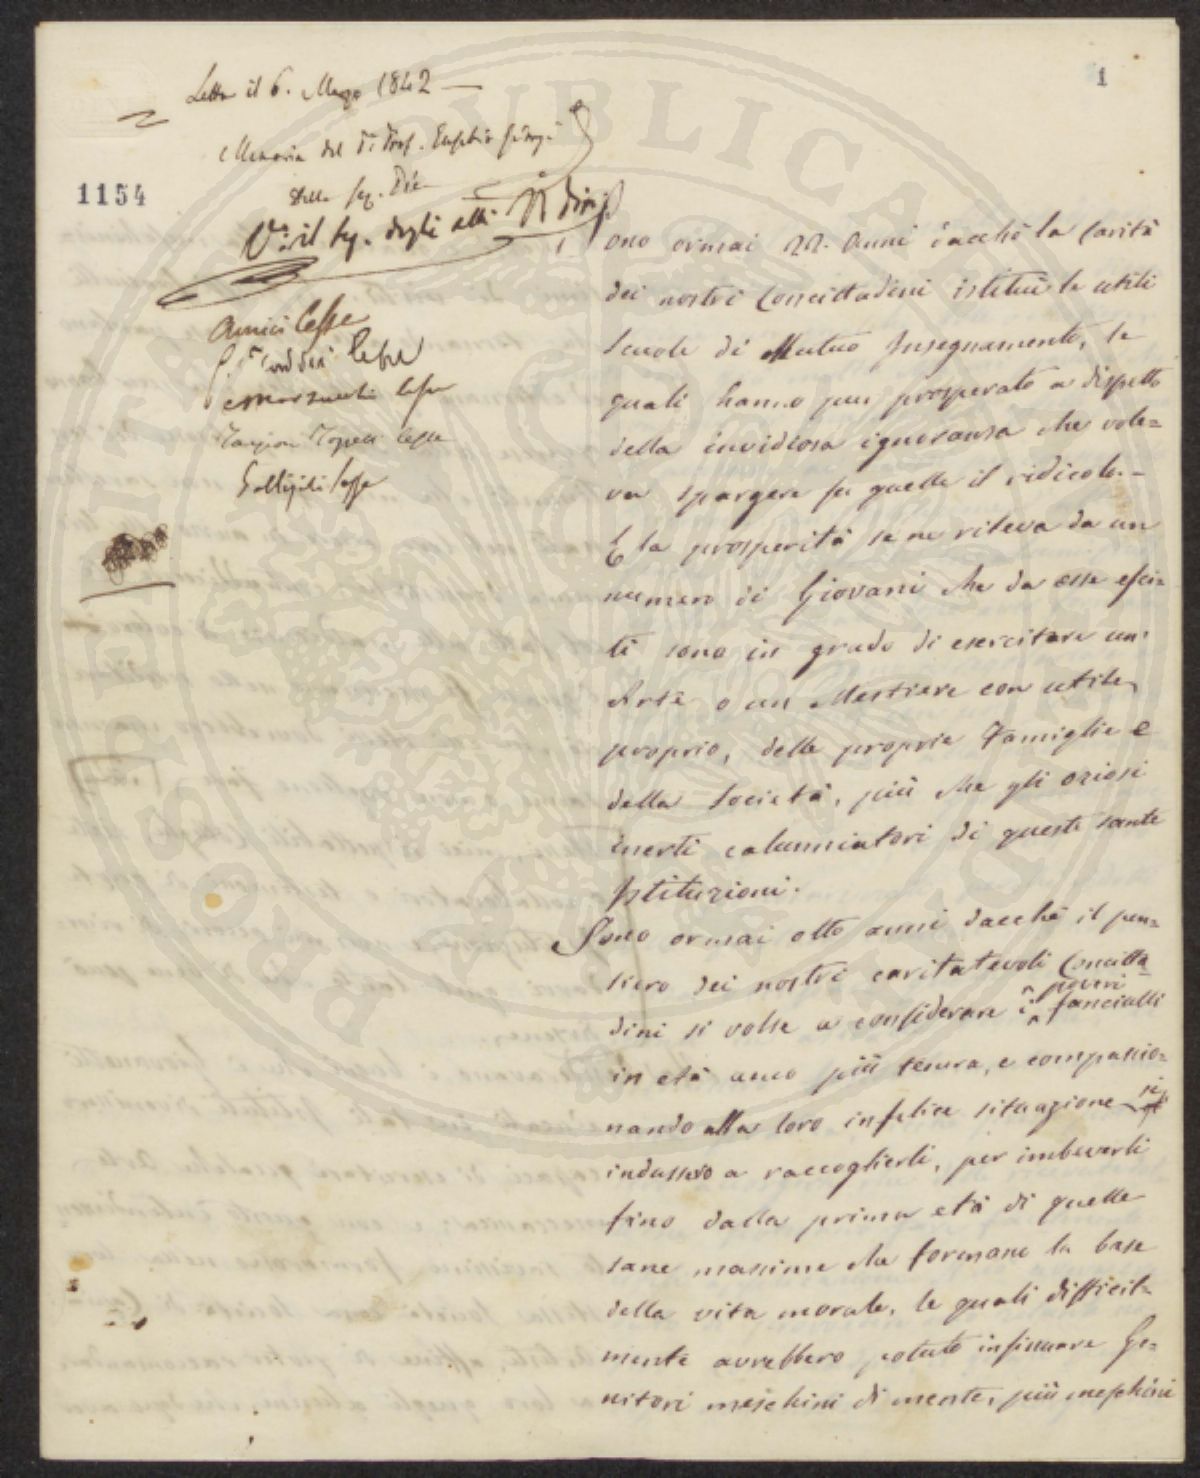 1
Letta il 6. Marzo 1842 —
Memoria del Sr. Prof. Eusebio Giorgi
Della
1154
Vo. il Seg. degli atti
Amici lesse
lesse
lesse
Targioni Tozzetti lesse
Gallizioli lesse
Sono ormai 22. Anni dacchè la Carità
dei nostri Concittadini istituì le utili
Scuole di Mutuo Insegnamento, le
quali hanno pur prosperato a dispetto
della invidiosa ignoranza che vole=
va spargere su quelle il ridicolo. –
E la prosperità se ne rileva da un
numero di Giovani che da esse esci=
ti sono in grado di esercitare un'
Arte o un Mestiere con utile
proprio, delle proprie Famiglie e
della Società, più che gli oziosi
inerti calunniatori di queste sante
Istituzioni.
Sono ormai otto anni dacchè il pen=
siero dei nostri caritatevoli Concitta
dini si volse a considerare i poveri fanciulli
in età anco più tenera, e compassio=
nando alla loro infelice situazione si
indussero a raccoglierli, per imbeverli
fino dalla prima età di quelle
sane massime che formano la base
della vita morale, le quali difficil=
mente avrebbero potuto insinuare Ge=
nitori meschini di mente, più meschini